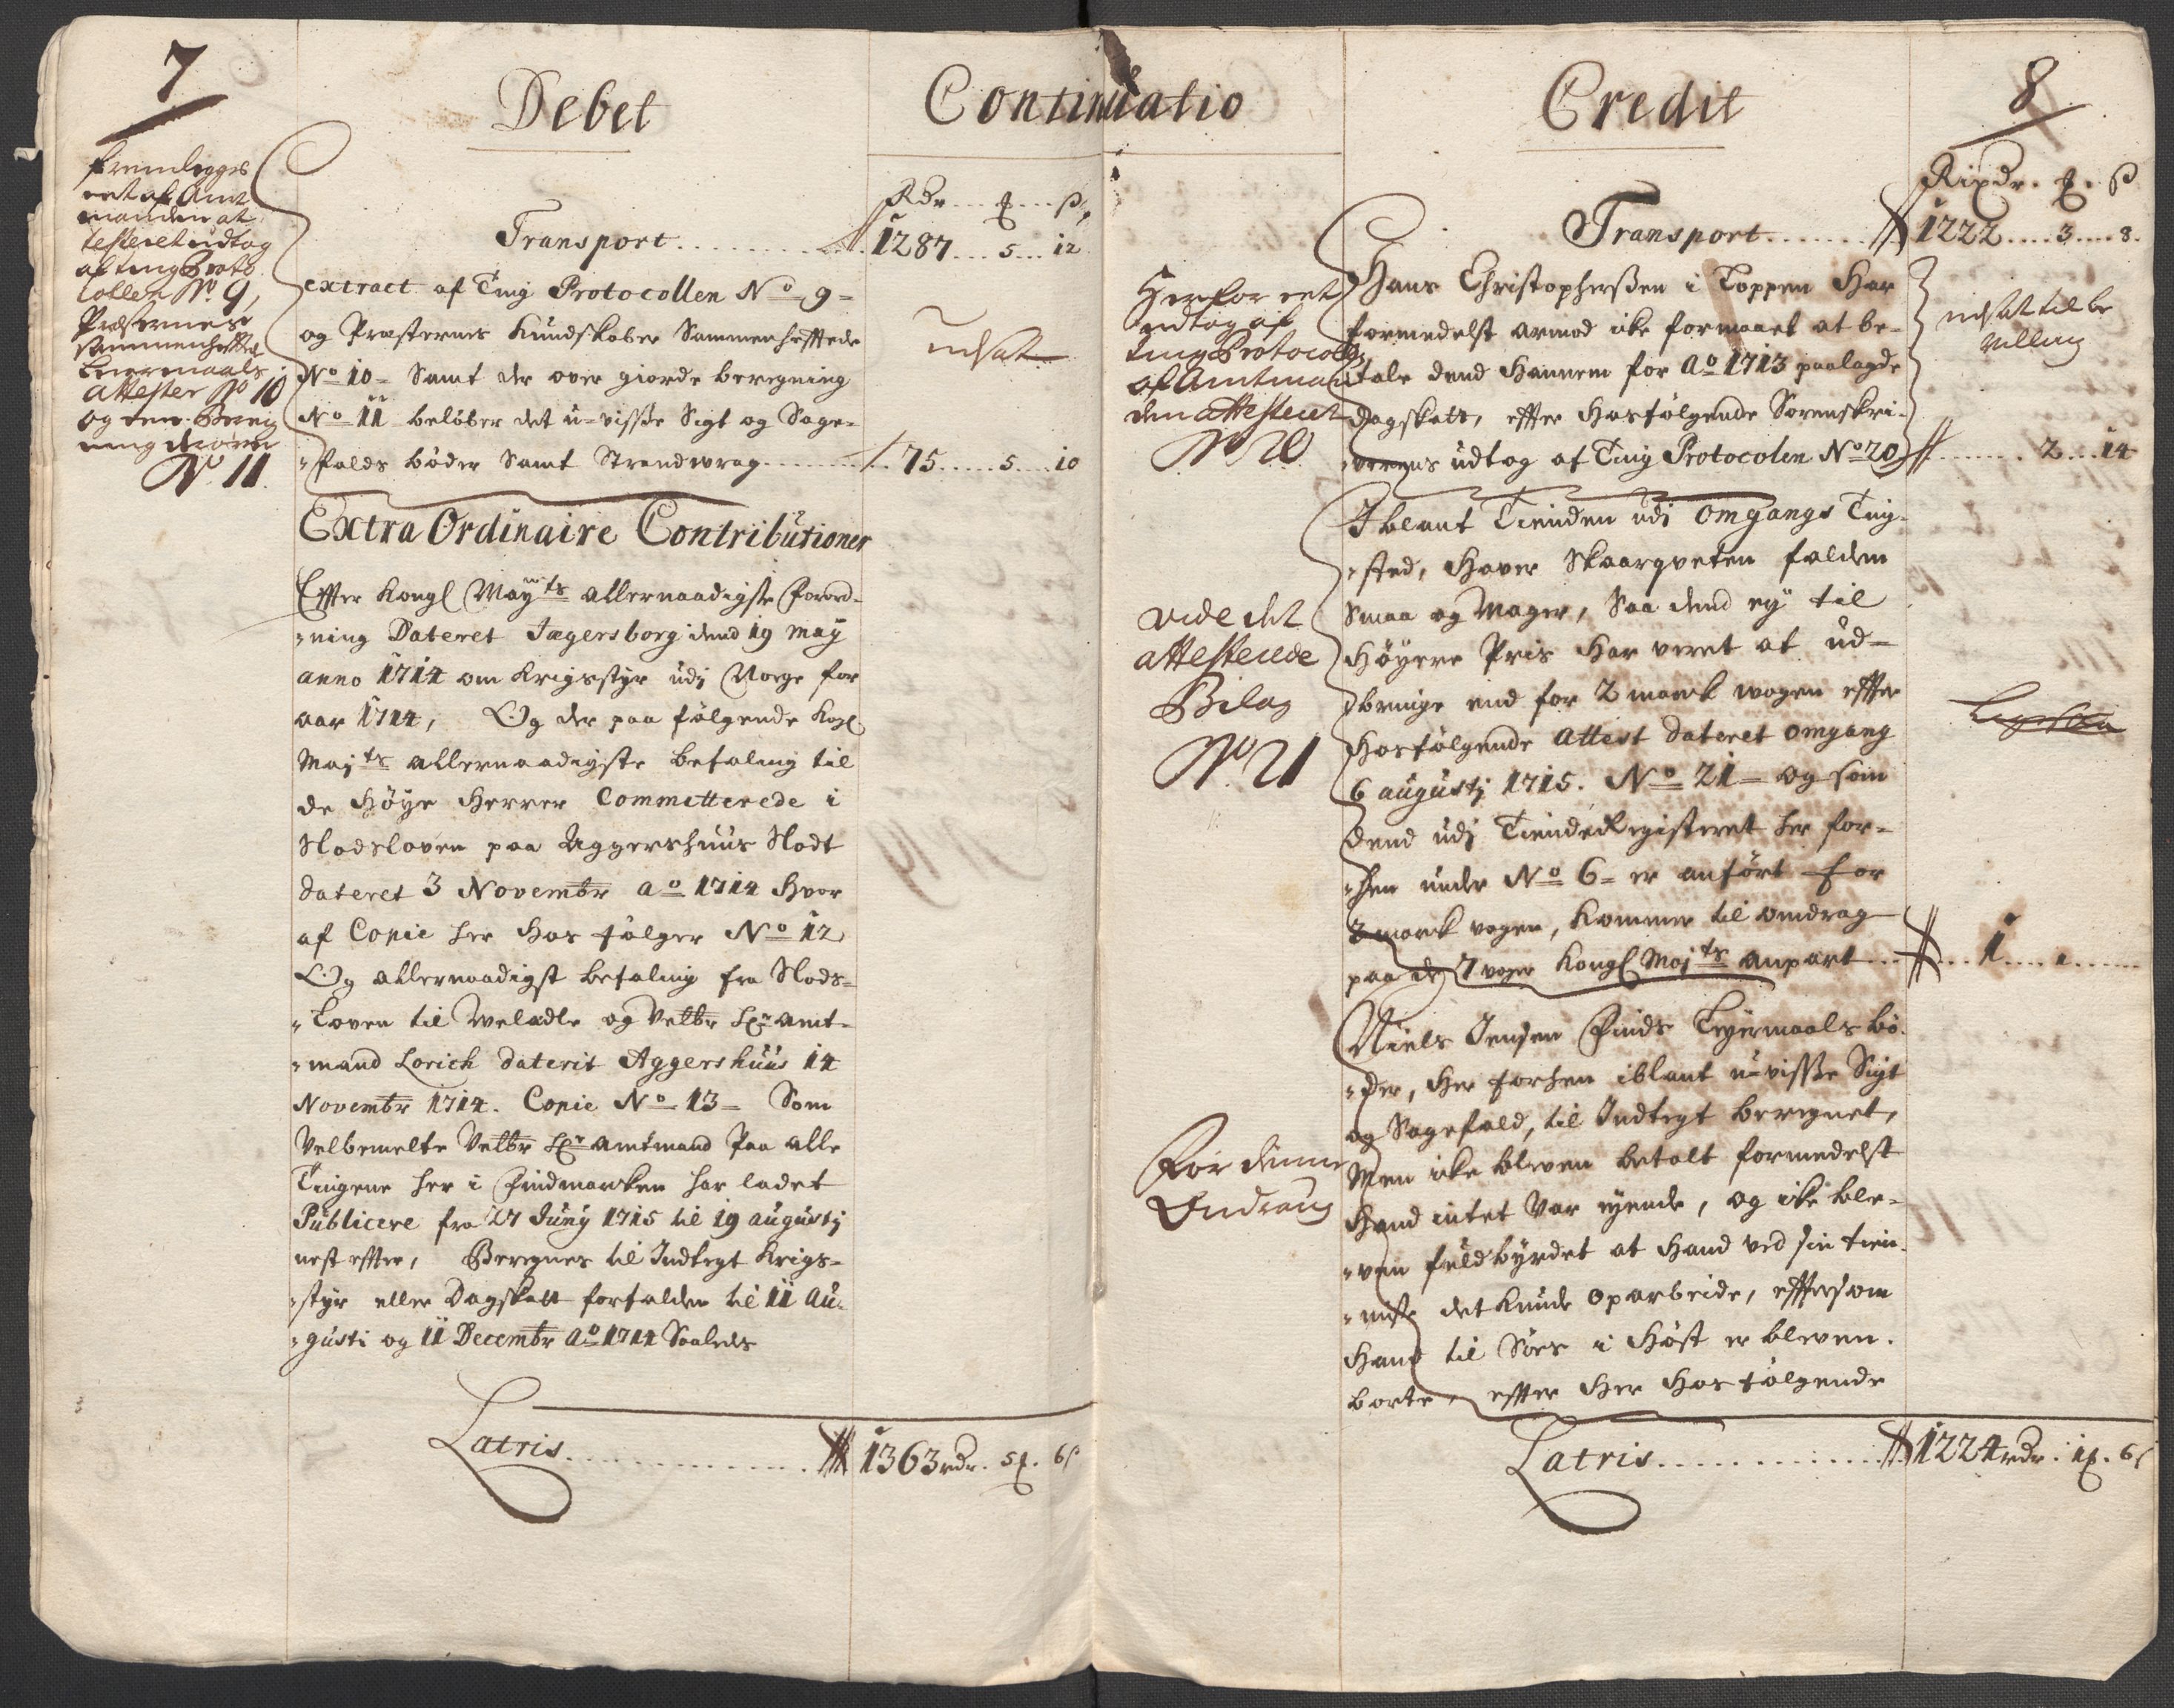 7
Debet
Continuatio
fremlegges
eet af Amt
manden at
testeret udtog
af ting Proto
collen No. 9,
Præsternes
sammenheftede
Leiermaals
attester No 10
og den Bereig
ning derover
No. 11
Rdr ... ℔ ... ß
Transport ........ 1287 ... 5 ... 12
extract af Ting Protocollen No 9 =
og Præsternes Kundskaber Sammenhefftede
No 10 = Samt der over giorde beregning
No 11 beløber det u-visse Sigt og Sage-
falds bøder Samt Strandwrag ........ 75 .... 5 ... 10
udsat
Extra Ordinaire Contributioner
Effter Kongl Mayts allernaadigste Forord-
ning Dateret Jægersborg dend 19 may
anno 1714 om Krigsstyr udj Norge for
aar 1714, Og der paa følgende Kogl
Majts allernaadigste befaling til
de Høye Herrer Committerede i
Slodsloven paa Aggershuus Slodt
dateret 3 Novembr ao 1714 Hvor
af Copie her Hos følger No 12
Og allernaadigst befaling fra Slods-
Loven til Welædle og Velbr Hr amt-
mand Lorich daterit Aggershuus 14
Novembr 1714. Copie No 13 = Som
Velbemelte Velbr Hr amtmand Paa alle
Tingene her i Findmarken har ladet
Publicere fra 27 Juny 1715 til 19 augustj
nest effter, Beregnes til Indtegt Krigs-
styr eller Dagskatt forfalden til 11 Au-
gusti og 11 Decembr ao 1714 Saaledes
Latris ............ 1363 rdr. 5 ℔. 6 ß
Credit
8
Rixdr. ℔. ß
Transport ....... 1222 .... 3 .... 8.
Herfor eet
udtog af
ting Protocoll
af Amtman
den attesteret
No 20
Hans Christopherßen i Toppen Har
formedelst armod icke formaaet at be-
tale dend Hannem for Ao 1713 paalagde
dagskatt, effter Hosfølgende Sorenskri-
verens udtog af Ting Protocolen No 20 ........ 2 ... 14
udsat til be
villing
Iblant Tienden udi Omgangs Ting-
sted, Haver Skaarqveten falden
Smaa og Mager, Saa dend ey til
Høyere Pris Har veret at ud-
bringe end for 2 marck wogen effter
Hosfølgende Attest dateret Omgang
6 augustj 1715. No 21 = og som
dend udj Tiende Registeret her for-
hen under No 6 = er anført for
3 marck vogen, Kommer til omdrag
paa de 7 voger Kongl Majts anpart ... 1 .... " ....
vide det
attesterede
Bilag
No. 21
Niels Jensen Finds Leyermaals bø-
der, Her forhen iblant u-visse Sigt
og Sagefald, til Indtegt beregnet,
Men icke bleven betalt formedelst
Hand intet Var eyende, og icke ble-
ven fuldbyrdet at Hand ved sin tien-
niste det kunde oparbeide, efftersom
Hand til Søes i Høst er bleven
borte, effter Her Hos følgende
For denne
Andrang
Latris ............ 1224 rdr. 1 ℔. 6 ß